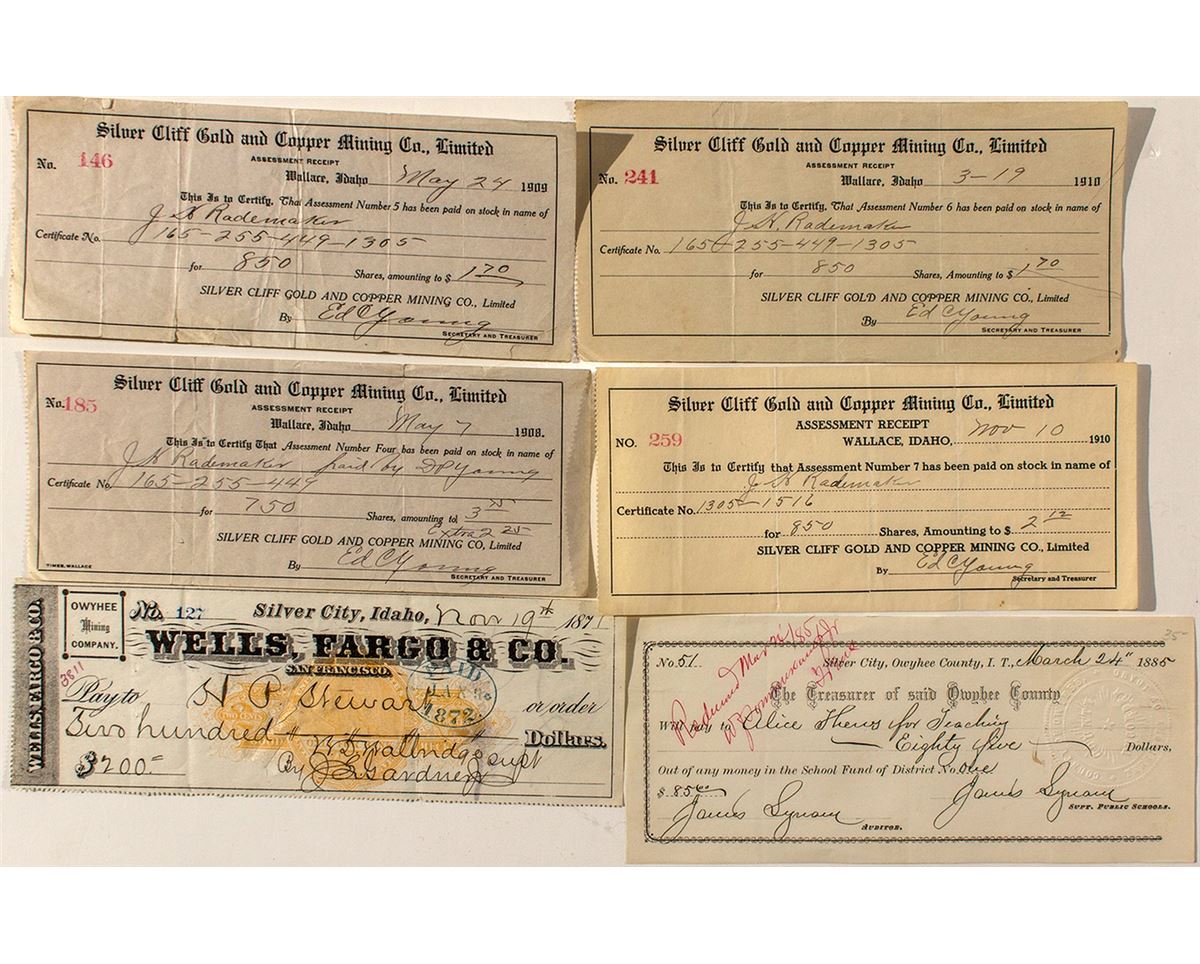 Silver Cliff Gold and Copper Mining Co., Limited
No. 146
ASSESSMENT RECEIPT
Wallace, Idaho May 24 1909
This Is to Certify, That Assessment Number 5 has been paid on stock in name of
J H Rademaker
Certificate No. 165-255-449-1305
for 850 Shares, amounting to $ 1 70
SILVER CLIFF GOLD AND COPPER MINING CO., Limited
By Ed C Young
SECRETARY AND TREASURER
Silver Cliff Gold and Copper Mining Co., Limited
No. 241
ASSESSMENT RECEIPT
Wallace, Idaho 3-19 1910
This Is to Certify, That Assessment Number 6 has been paid on stock in name of
J. H. Rademaker
Certificate No. 165-255-449-1305
for 850 Shares, Amounting to $ 1 70
SILVER CLIFF GOLD AND COPPER MINING CO., Limited
By Ed C Young
SECRETARY AND TREASURER
Silver Cliff Gold and Copper Mining Co., Limited
No. 185
ASSESSMENT RECEIPT
Wallace, Idaho May 7 1908.
This Is to Certify That Assessment Number Four has been paid on stock in name of
J H Rademaker paid by D P Young
Certificate No. 165-255-449
for 750 Shares, amounting to $ 3 75
Extra 2 25
SILVER CLIFF GOLD AND COPPER MINING CO., Limited
By Ed C Young
TIMES, WALLACE
SECRETARY AND TREASURER
Silver Cliff Gold and Copper Mining Co., Limited
ASSESSMENT RECEIPT
NO. 259
WALLACE, IDAHO, Nov 10 1910
This Is to Certify that Assessment Number 7 has been paid on stock in name of
J H Rademaker
Certificate No. 1305-1516
for 850 Shares, Amounting to $ 2 12
SILVER CLIFF GOLD AND COPPER MINING CO., Limited
By Ed C Young
Secretary and Treasurer
WELLS, FARGO & CO.
OWYHEE
Mining
COMPANY.
3811
No. 127 Silver City, Idaho, Nov 19th 1871
WELLS, FARGO & CO.
SAN FRANCISCO.
PAID
1872
Pay to H P Stewart or order
TWO CENTS
Two hundred Dollars.
$200.- By J E Gardner
35-
No. 51. Silver City, Owyhee County, I. T., March 24" 1885
The Treasurer of said Owyhee County
Will pay to Alice Thews for Teaching
Eighty five Dollars,
Out of any money in the School Fund of District No. One
$ 85.00 James Lynam
SUPT. PUBLIC SCHOOLS.
James Lynam
AUDITOR.